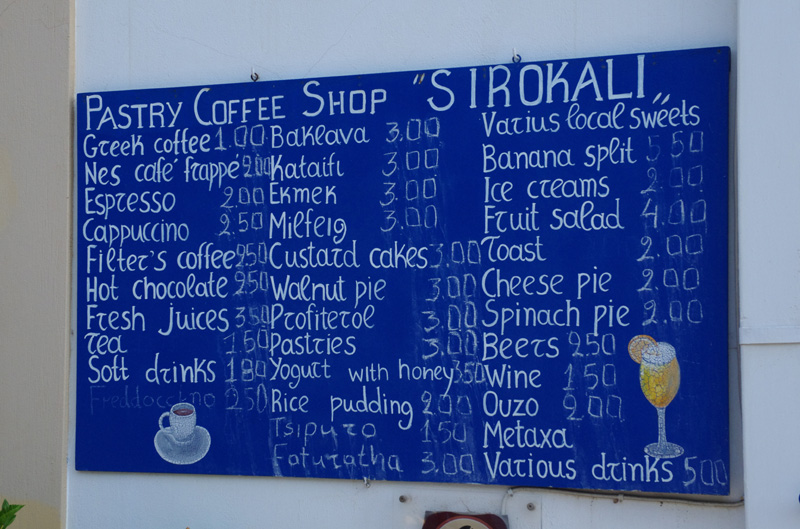 PASTRY COFFEE SHOP "SIROKALI"
Greek coffee 1.00
Nes café frappé 2.00
Espresso 2.00
Cappuccino 2.50
Filter's coffee 2.50
Hot chocolate 2.50
Fresh Juices 3.50
Tea 1.50
Soft drinks 1.80
Freddoccino 2.50
Baklava 3.00
Kataifi 3.00
Ekmek 3.00
Milfeig 3.00
Custard cakes 3.00
Walnut pie 3.00
Profiterol 3.00
Pastries 3.00
Yogurt with honey 3.50
Rice pudding 2.00
Tsipuro 1.50
Faturatha 3.00
Varius local sweets
Banana split 5.50
Ice creams 2.00
Fruit salad 4.00
Toast 2.00
Cheese pie 2.00
Spinach pie 2.00
Beers 2.50
Wine 1.50
Ouzo 2.00
Metaxa
Various drinks 5.00